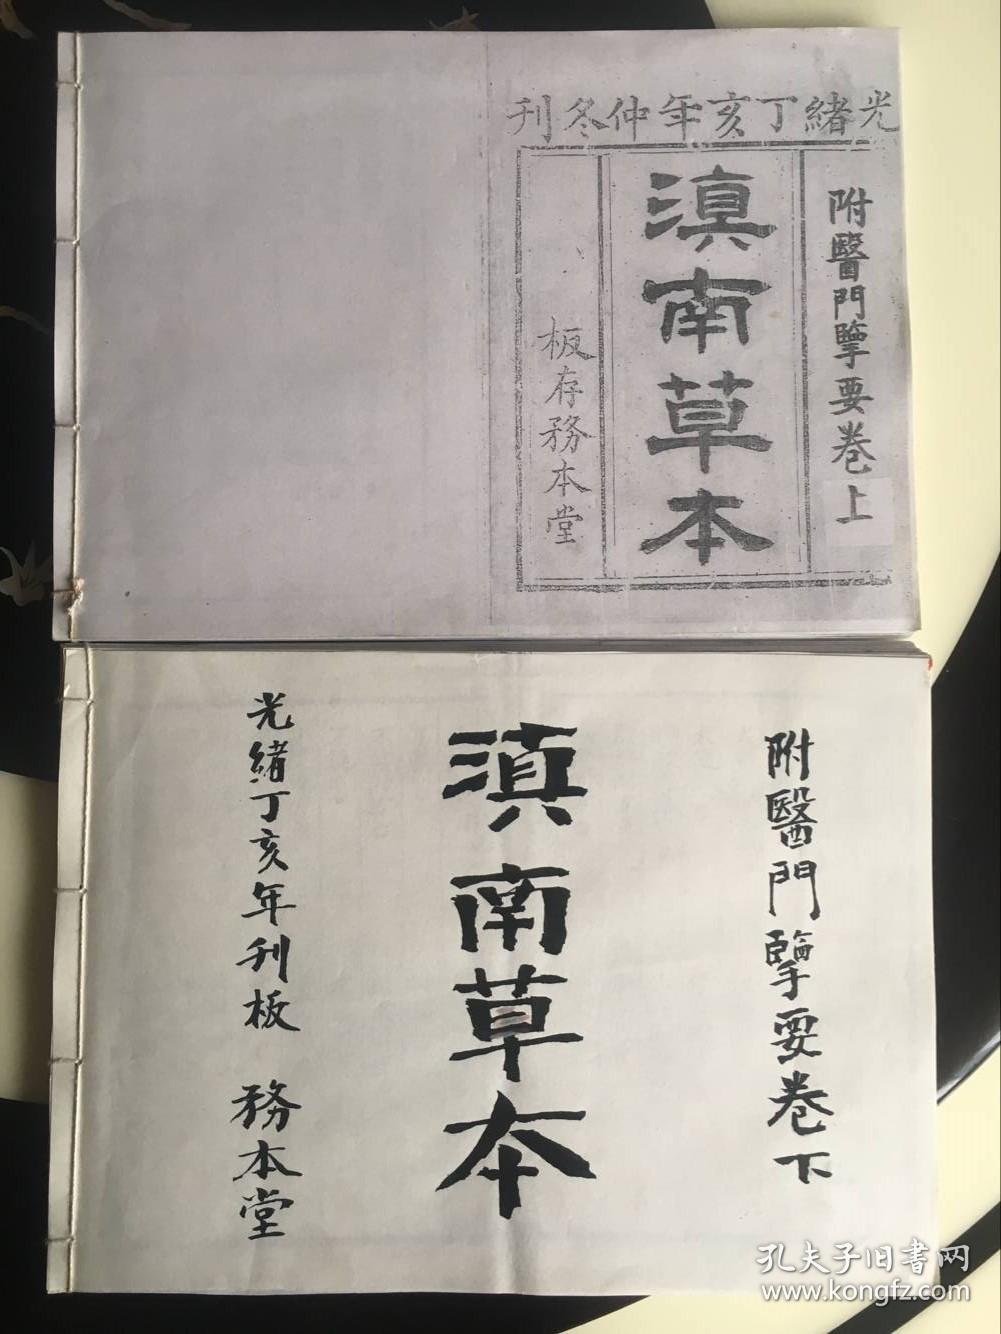 光緒丁亥年仲冬刊
附醫門擥要卷上
滇南草本
板存務本堂
附醫門擥要卷下
滇南草本
光緒丁亥年刊板 務本堂
孔夫子旧書网
www.kongfz.com